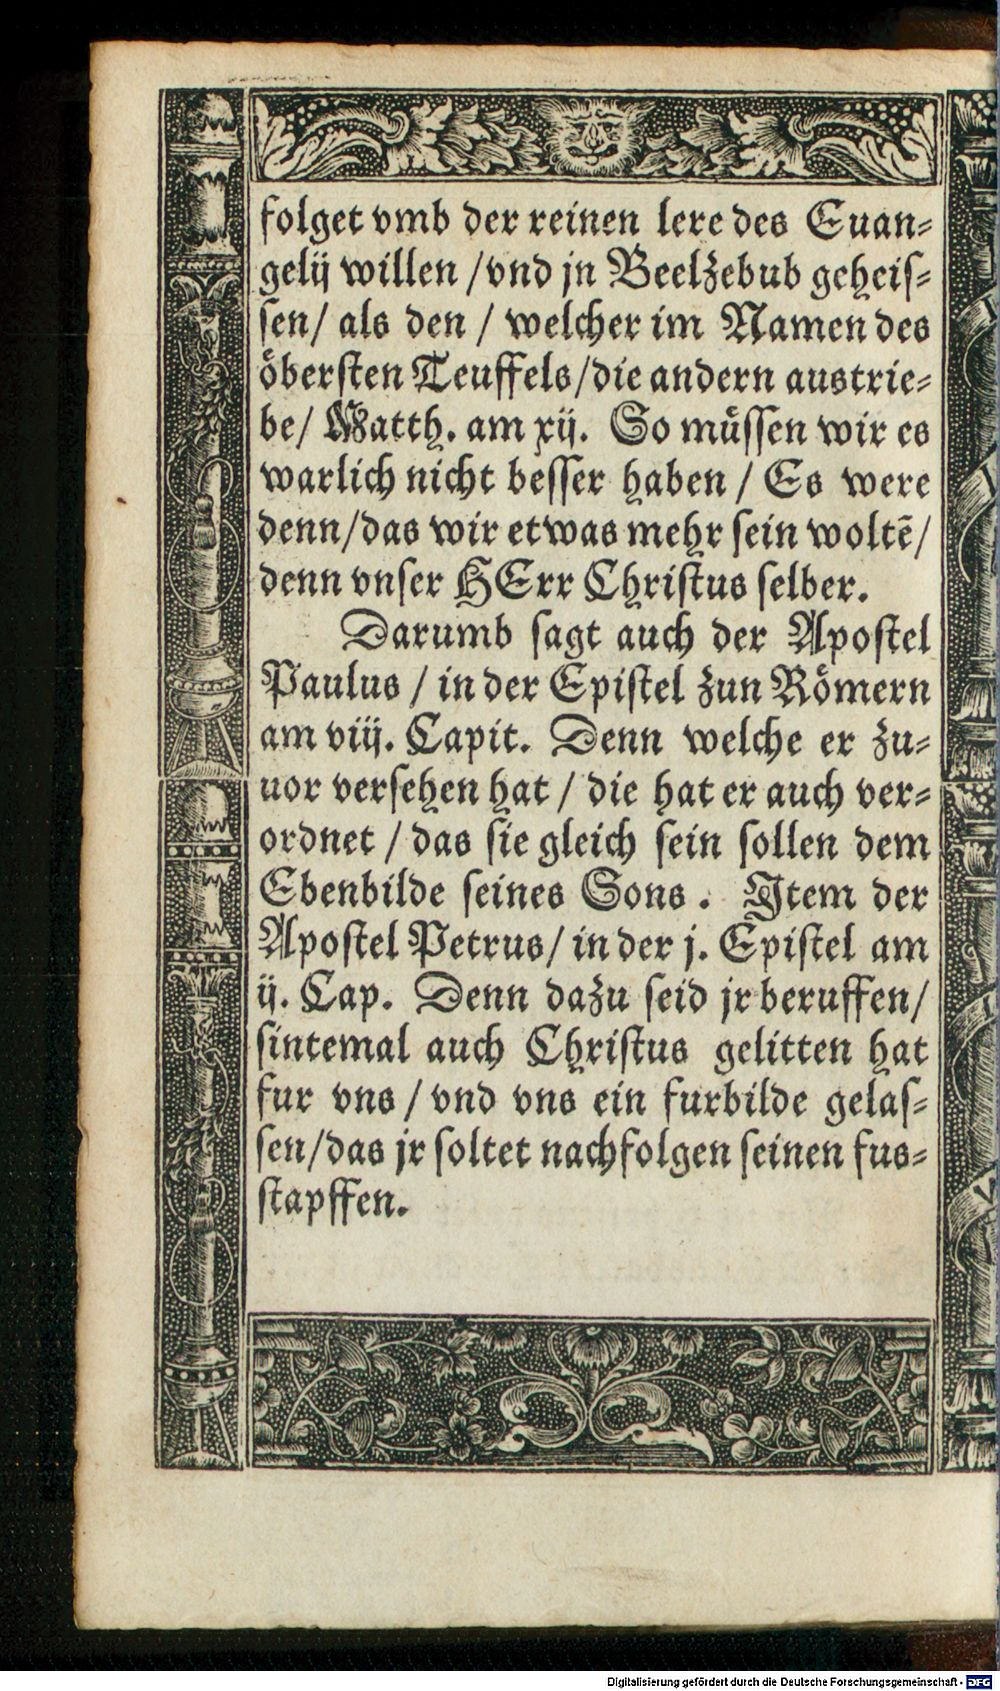 folget vmb der reinen lere des Euan⸗
gelij willen /vnd jn Beelzebub geheis⸗
sen/ als den / welcher im Namen des
öbersten Teuffels/die andern austrie⸗
be/ Matth. am xij. So müssen wir es
warlich nicht besser haben / Es were
denn/das wir etwas mehr sein woltē/
denn vnser HErr Christus selber.
Darumb sagt auch der Apostel
Paulus / in der Epistel zun Römern
am viij. Capit. Denn welche er zu⸗
uor versehen hat / die hat er auch ver⸗
ordnet / das sie gleich sein sollen dem
Ebenbilde seines Sons. Item der
Apostel Petrus/ in der j. Epistel am
ij. Cap. Denn dazu seid jr beruffen/
sintemal auch Christus gelitten hat
fur vns / vnd vns ein furbilde gelas⸗
sen/das jr soltet nachfolgen seinen fus⸗
stapffen.
Digitalisierung gefördert durch die Deutsche Forschungsgemeinschaft - DFG